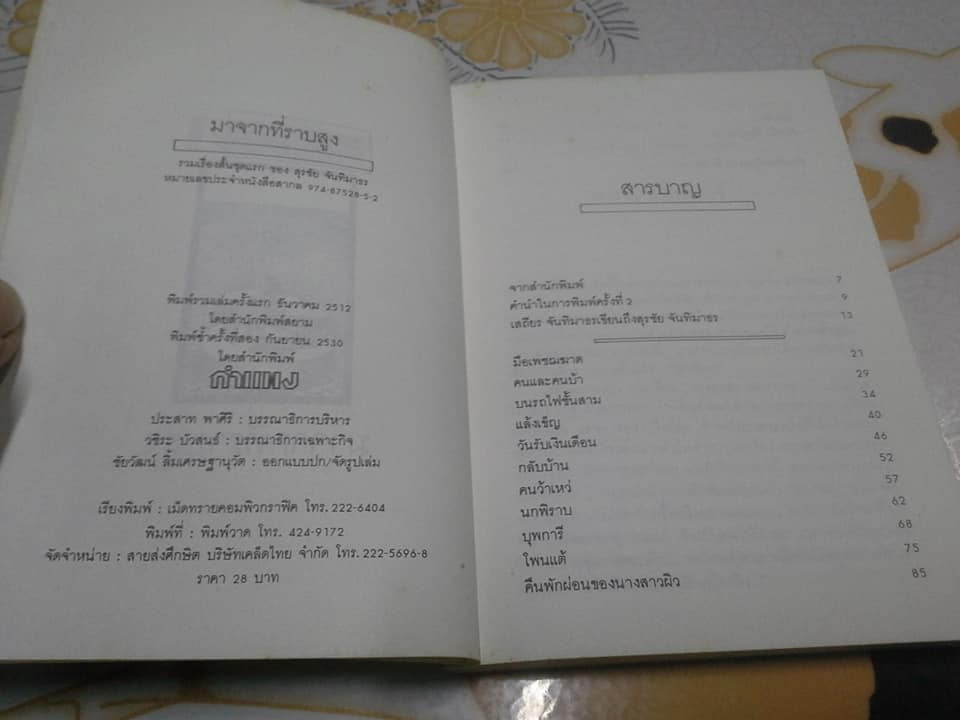 มาจากที่ราบสูง
รวมเรื่องสั้นชุดแรก ของ สุรชัย จันทิมาธร
หมายเลขประจำหนังสือสากล 974-87528-5-2
พิมพ์รวมเล่มครั้งแรก ธันวาคม 2512
โดยสำนักพิมพ์สยาม
พิมพ์ซ้ำครั้งที่สอง กันยายน 2530
โดยสำนักพิมพ์
กำแพง
ประสาท พาศิริ : บรรณาธิการบริหาร
วชิระ บัวสนธ์ : บรรณาธิการเฉพาะกิจ
ชัยวัฒน์ ลิ้มเศรษฐานุวัต : ออกแบบปก/จัดรูปเล่ม
เรียงพิมพ์ : เม็ดทรายคอมพิวกราฟิค โทร. 222-6404
พิมพ์ที่ : พิมพ์วาด โทร. 424-9172
จัดจำหน่าย : สายส่งศึกษิต บริษัทเคล็ดไทย จำกัด โทร. 222-5696-8
ราคา 28 บาท
สารบาญ
จากสำนักพิมพ์ 7
คำนำในการพิมพ์ครั้งที่ 2 9
เสถียร จันทิมาธรเขียนถึงสุรชัย จันทิมาธร 13
มือเพชฌฆาต 21
คนและคนบ้า 29
บนรถไฟชั้นสาม 34
แล้งเข็ญ 40
วันรับเงินเดือน 46
กลับบ้าน 52
คนว้าเหว่ 57
นกพิราบ 62
บุพการี 68
โพนแต้ 75
คืนพักผ่อนของนางสาวผิว 85